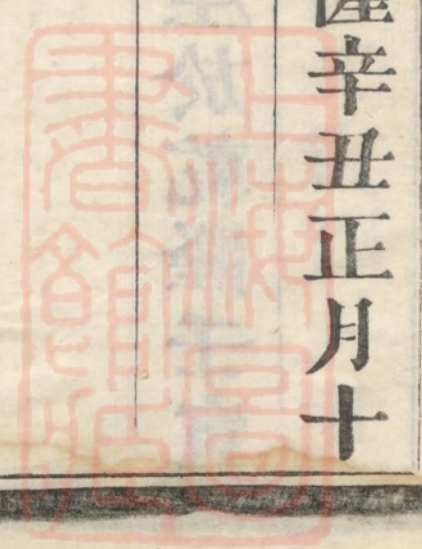 辛丑正月十
上海圖
書館藏